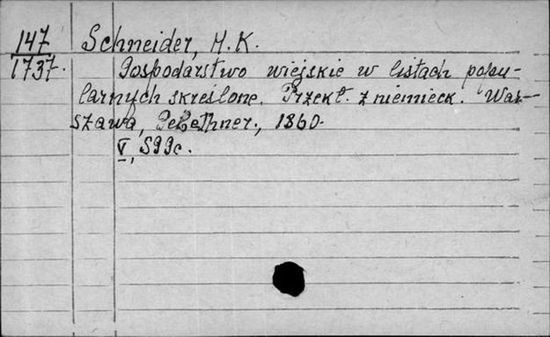 147
1737.
Schneider, H. K.
Gospodarstwo wiejskie w listach popu-
larnych skreślone. Przekł. z niemieck. War-
szawa, Gebethner, 1860.
V, 599c.